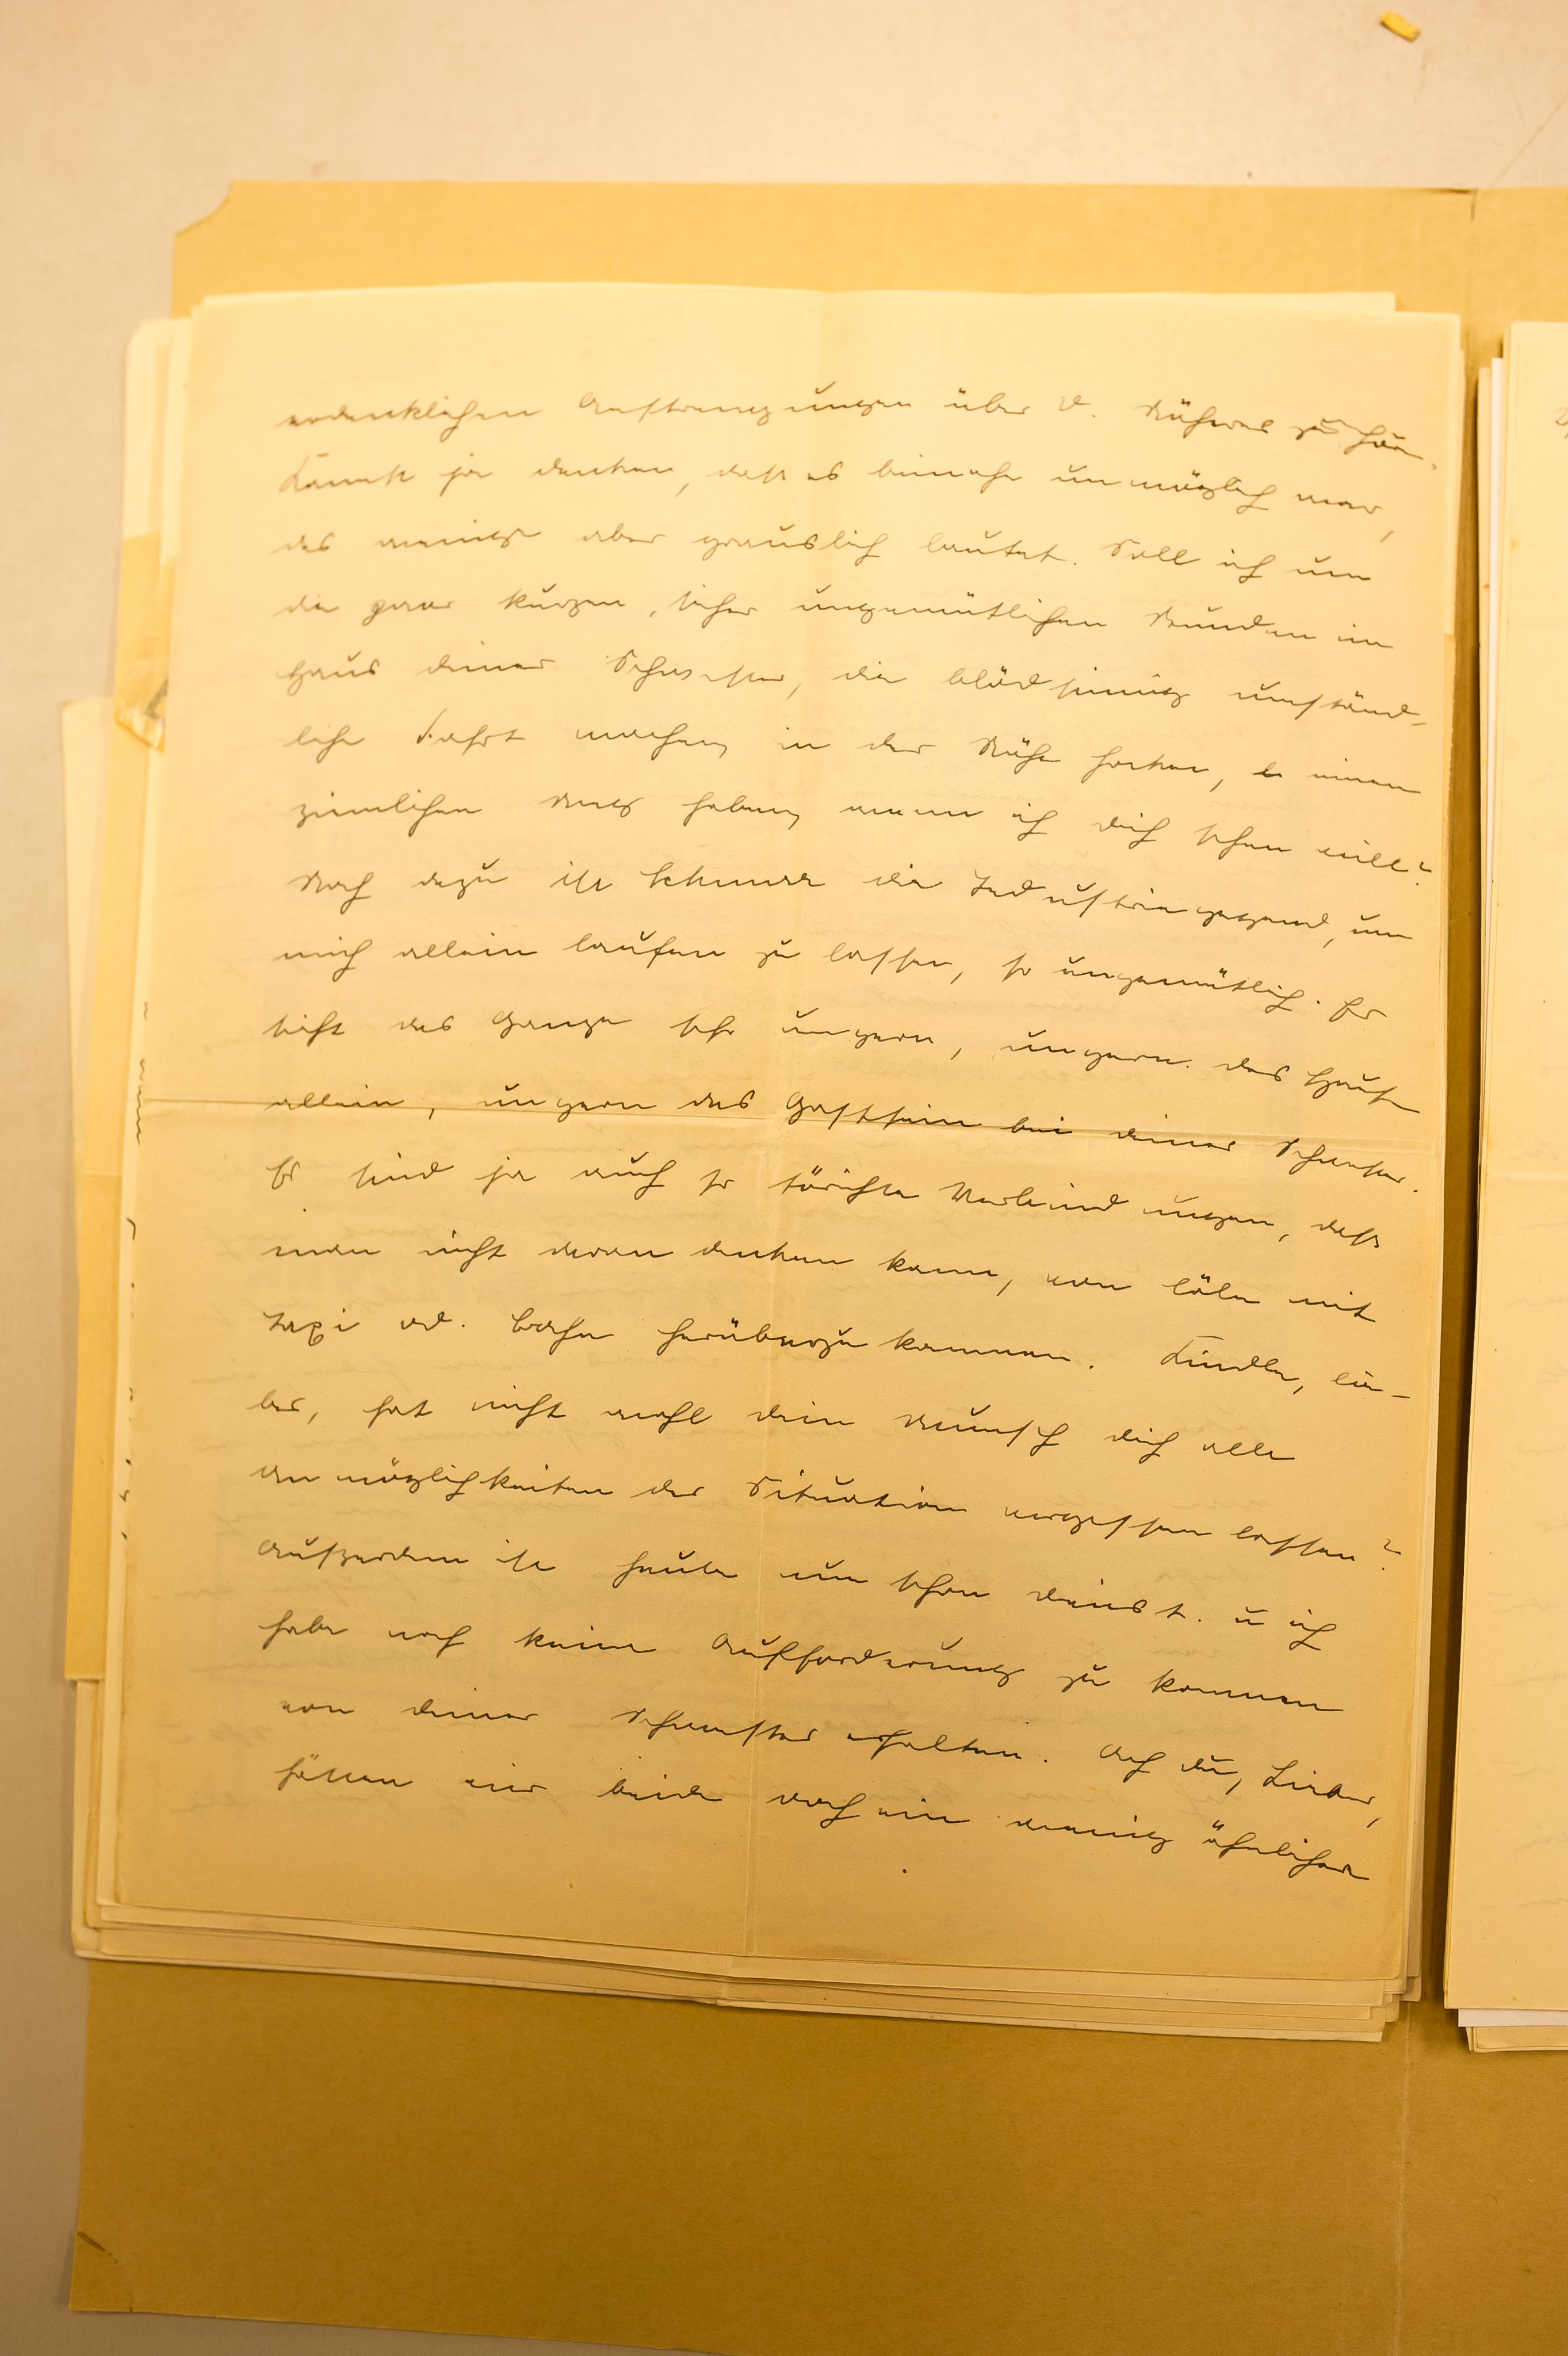 erdenklichen Anstrengungen über d. Näheres zu hören.
Kannst ja denken, dass es beinahe unmöglich war,
das wenige aber grauslich lautet. Soll ich um
die paar kurzen, sicher ungemütlichen Stunden im
Haus deiner Schwester, die blödsinnig umständ-
liche Fahrt machen, in der Nähe hocken, einen
ziemlichen Weg haben, wenn ich dich sehen will?
Noch dazu ist die Industriegegend, um
mich allein laufen zu lassen, so ungemütlich. Er
sieht das Ganze sehr ungern, ungern das Hause
allein, ungern das Gastsein bei deiner Schwester.
Es sind ja auch so törichte Verbindungen, dass
man nicht daran denken kann, von Cöln mit
Taxi od. Bahn herüberzukommen. Kindle, lie-
ber, hat nicht wohl dein Wunsch dich alle
unmöglichkeiten der Situation vergessen lassen?
Außerdem ist heute nun schon Dienst. u ich
habe noch keine Aufforderung zu kommen
von deiner Schwester erhalten. Ach du, Lieber,
hätten wir beide doch ein wenig ähnlichere